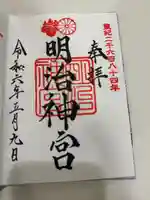 皇紀二千六百八十四年
奉拝
明治神宮
令和六年五月九日